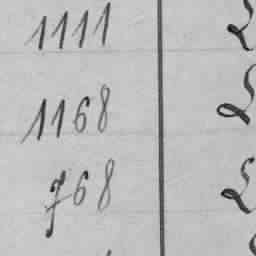 1111
1168
768